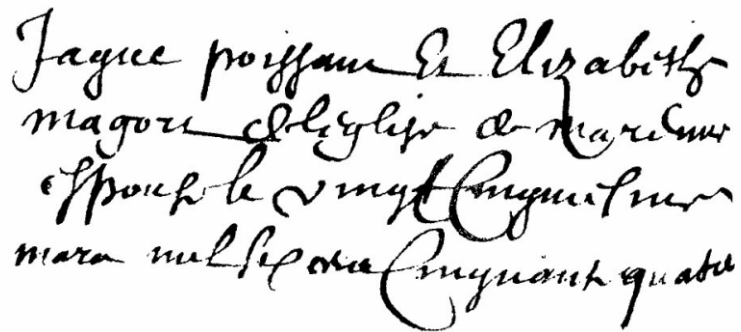 Jaque poissant Et Elizabeth
magori de leglise de marennes
espouse le vingt cinquiesme
mars mil six cens cinquant quatre